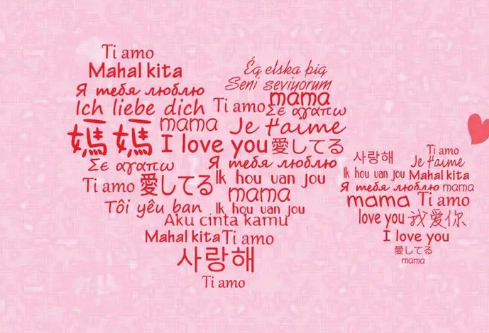 Ti amo
Mahal kita
Ég elska þig
Seni seviyorum
Я тебя люблю
mama
Ich liebe dich
Ti amo
Σε αγαπω
媽媽
mama
Je t'aime
I love you
愛してる
Σε αγαπω
Я тебя люблю
Ti amo
愛してる
Ik hou van jou
mama
Tôi yêu bạn
Ik hou van jou
Aku cinta kamu
Mahal kita
Ti amo
사랑해
Ti amo
Ti amo
사랑해
Je t'aime
Ik hou van jou
Mahal kita
Я тебя люблю
mama
mama
Ti amo
love you
我愛你
I love you
愛してる
mama